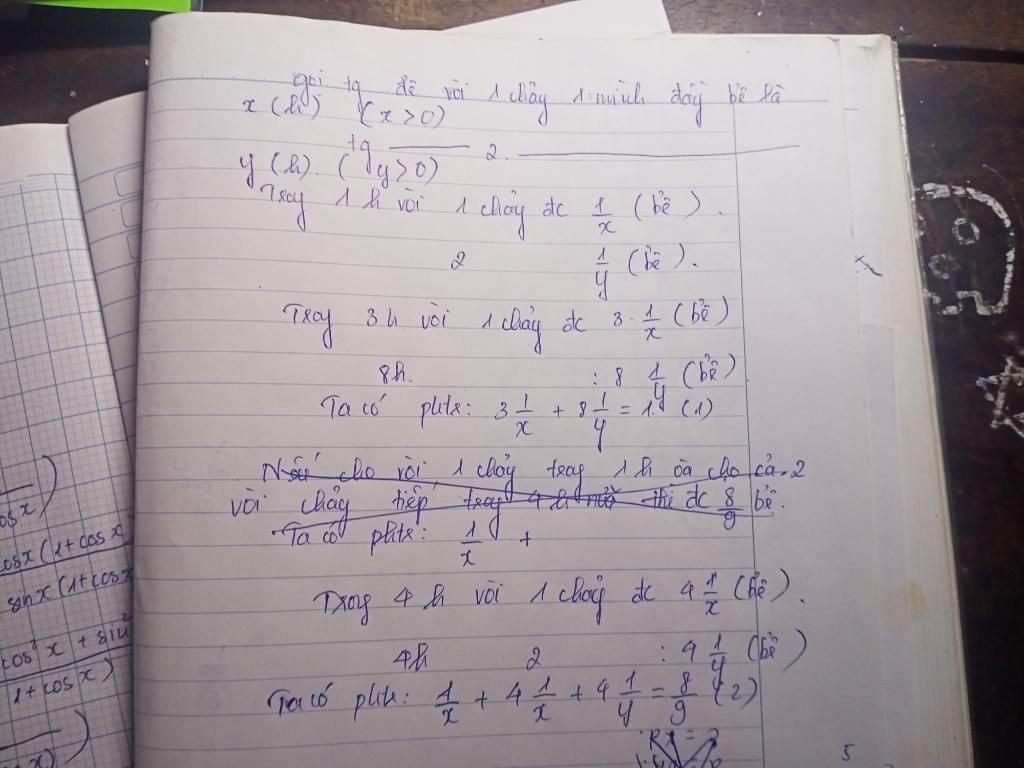 gọi tg để vòi 1 chảy 1 mình đầy bể là
x (h) (x > 0)
tg ——— 2. ———————
y (h). (y > 0)
Trog 1 h vòi 1 chảy đc 1/x (bể).
2 1/y (bể).
Trog 3 h vòi 1 chảy đc 3 · 1/x (bể)
8h. : 8 1/y (bể)
Ta có phtr: 3 1/x + 8 1/y = 1. (1)
Nếu cho vòi 1 chảy trog 1 h và cho cả 2
vòi chảy tiếp trog 4 h nữa thì đc 8/9 bể.
Ta có phtr: 1/x +
Trog 4 h vòi 1 chảy đc 4 1/x (bể).
4h 2 : 4 1/y (bể)
Ta có phtr: 1/x + 4 1/x + 4 1/y = 8/9 (2)
5
cosx (1 + cosx
sinx (1 + cosx
cos² x + sin²
1 + cosx)